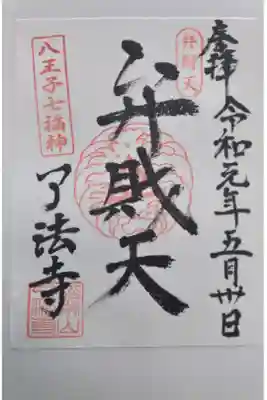 奉拝 令和元年五月卅日
弁財天
弁財天
八王子七福神
了法寺